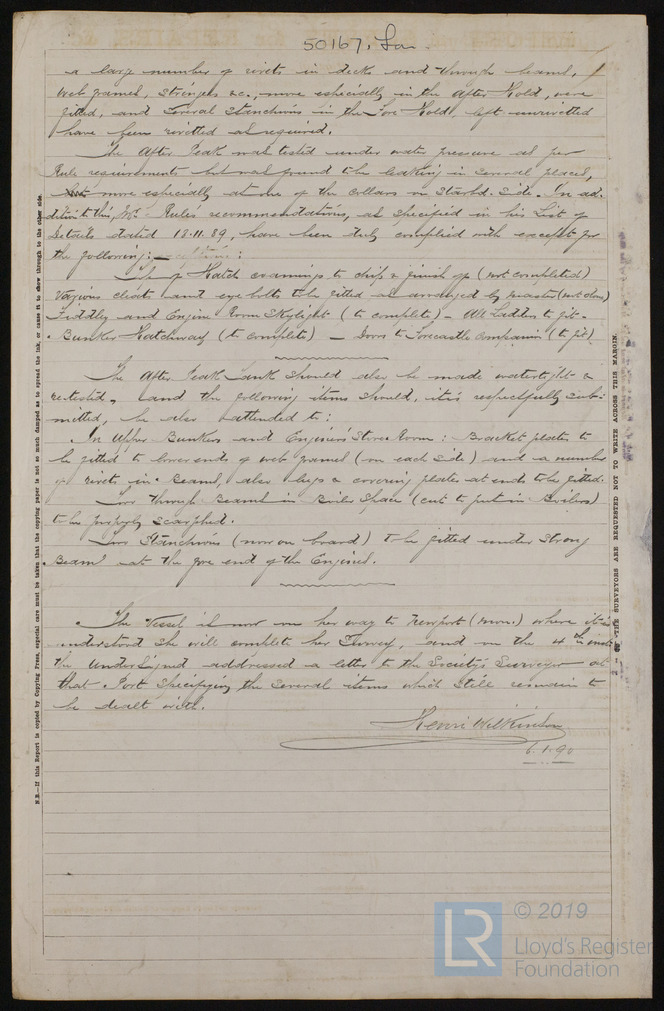 50167. Lon.
a large number of rivets in decks and through beams,
web frames, stringers &c., more especially in the After Hold, were
fitted, and several Stanchions in the Fore Hold, left unrivetted
have been rivetted as required.
The After Peak was tested under water pressure as per
Rule requirements but was found to be leaking in several places,
more especially at one of the collars on Starbd. Side. In ad-
dition to this, Mr. Rule's recommendations, as specified in his List of
Details dated 18.11.89, have been duly complied with except for
the following:-
Hatch coamings to chip & finish up (not completed)
Various cleats and eye bolts to be fitted as arranged by master (not done)
Fiddley and Engine Room Skylight (to complete) - All Ladders to fit -
Bunker Hatchway (to complete) - Doors to Forecastle Companion (to fit).
The After Peak Tank should also be made watertight &
retested, and the following items should, it is respectfully sub-
mitted, be also attended to:
In Upper Bunkers and Engineer's Store Room: Bracket plates to
be fitted to lower ends of web frames (on each side) and a number
of rivets in Beams, also lugs & covering plates at ends to be fitted.
Two through Beams in Boiler Space (cut to put in Boilers)
to be properly scarphed.
Two Stanchions (now on board) to be fitted under Strong
Beam at the fore end of the Engines.
The Vessel is now on her way to Newport (Mon.) where it is
understood she will complete her Survey, and on the 4th inst
the Undersigned addressed a letter to the Society's Surveyor at
that Port specifying the several items which still remain to
be dealt with.
Henri Wilkinson
6.1.90
N.B.—If this Report is copied by Copying Press, especial care must be taken that the copying paper is not so much damped as to spread the ink, or cause it to show through to the other side.
THE SURVEYORS ARE REQUESTED NOT TO WRITE ACROSS THIS MARGIN.
LR
© 2019
Lloyd's Register
Foundation